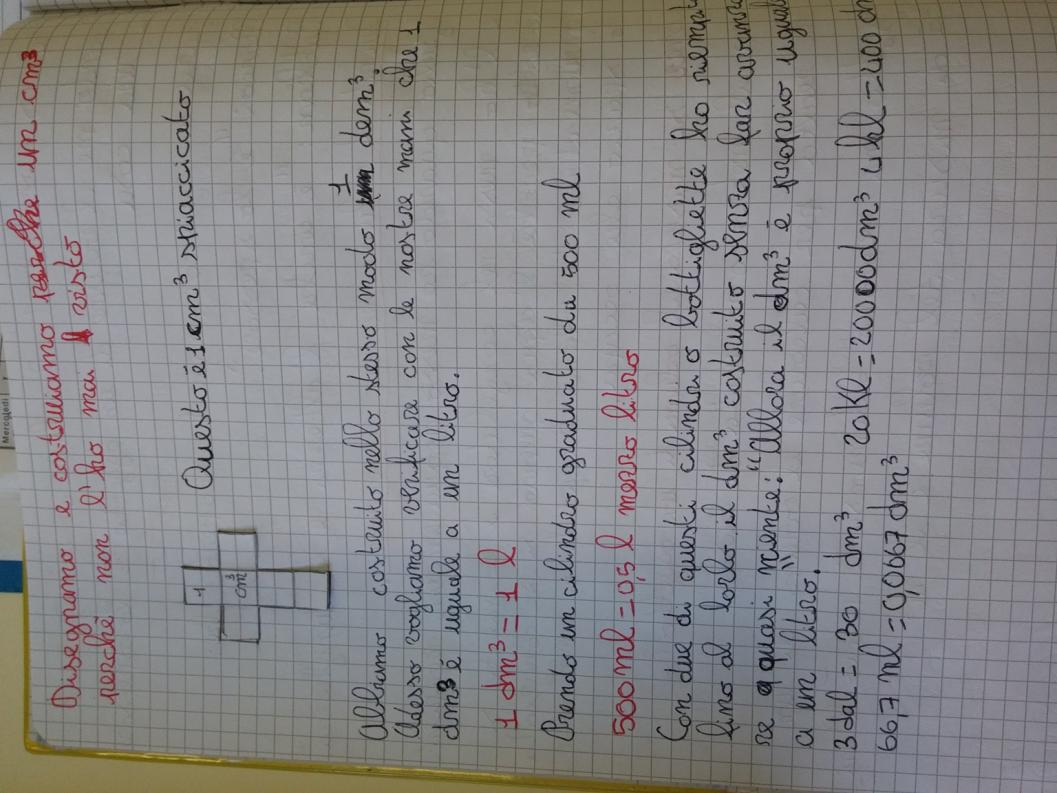 Mercoledì
Disegnamo e costruiamo perche un cm³
perchè non l'ho mai visto
1
cm³
Questo é 1 cm³ spiaccicato
Abbiamo costruito nello stesso modo 1 dcm³
Adesso vogliamo verificare con le nostre mani che 1
dm³ é uguale a un litro.
1 dm³ = 1 l
Prendo un cilindro graduato da 500 ml
500 ml = 0,5 l mezzo litro
Con due di questi cilindri o bottigliette ho
fino al bordo il dm³ costruito senza far
re quasi niente: "Allora il dm³ é proprio
a un litro."
3 dal = 30 dm³ 20 Kl = 20000 dm³ 4 hl = 400
66,7 ml = 0,0667 dm³